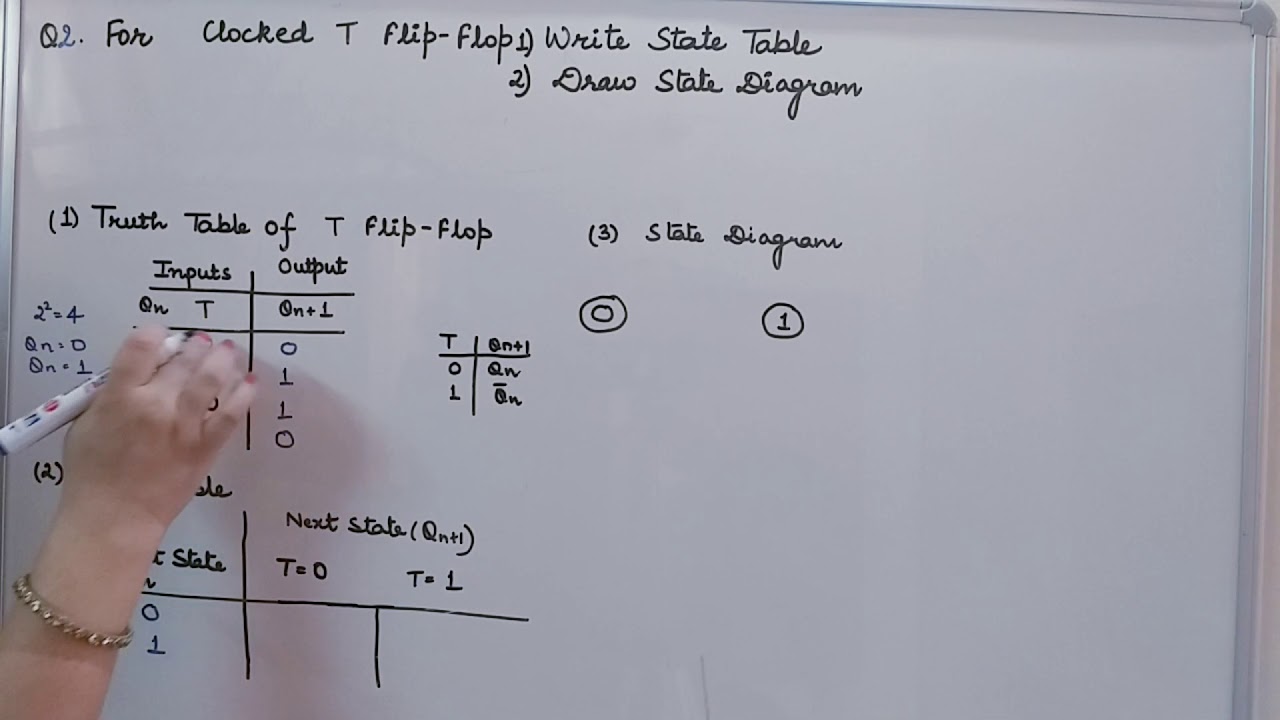 Q2. For Clocked T Flip-Flop 1) Write State Table
2) Draw State Diagram
(1) Truth Table of T Flip-Flop
Inputs | Output
Qn T | Qn+1
0
1
1
0
2² = 4
Qn = 0
Qn = 1
T | Qn+1
0 | Qn
1 | Q̅n
(2)
Next State (Qn+1)
State
T = 0 T = 1
0
1
(3) State Diagram
0 1